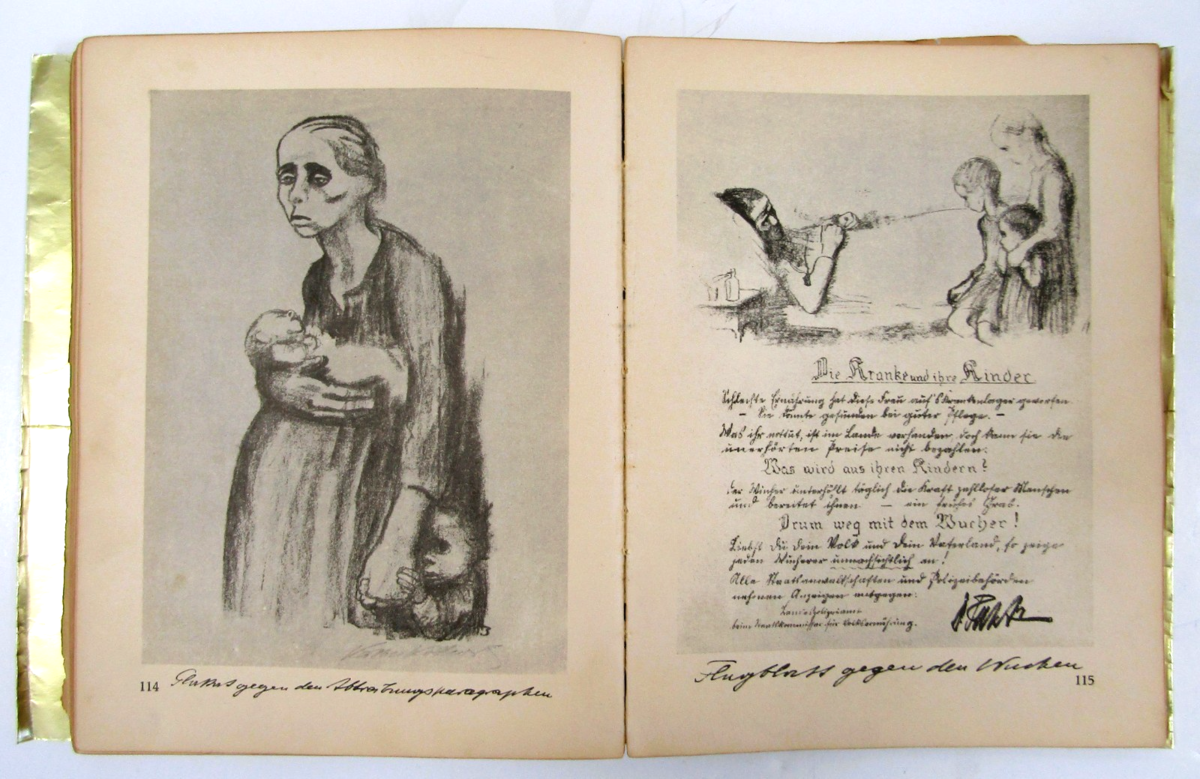 114
Plakat gegen den Abtreibungsparagraphen
Die Kranke und ihre Kinder
Schlechte Ernährung hat diese Frau auf's Krankenlager geworfen
— Sie könnte gesunden bei guter Pflege. —
Was ihr nottut, ist im Lande vorhanden, doch kann sie die
unerhörten Preise nicht bezahlen.
Was wird aus ihren Kindern?
Der Wucher unterhöhlt täglich die Kraft zahlloser Menschen
und bereitet ihnen — ein frühes Grab.
Drum weg mit dem Wucher!
Liebst Du Dein Volk und Dein Vaterland, so zeige
jeden Wucherer unnachsichtlich an!
Alle Staatsanwaltschaften und Polizeibehörden
nehmen Anzeigen entgegen.
Landespolizeiamt
beim Staatskommissar für Volksernährung.
Flugblatt gegen den Wucher
115